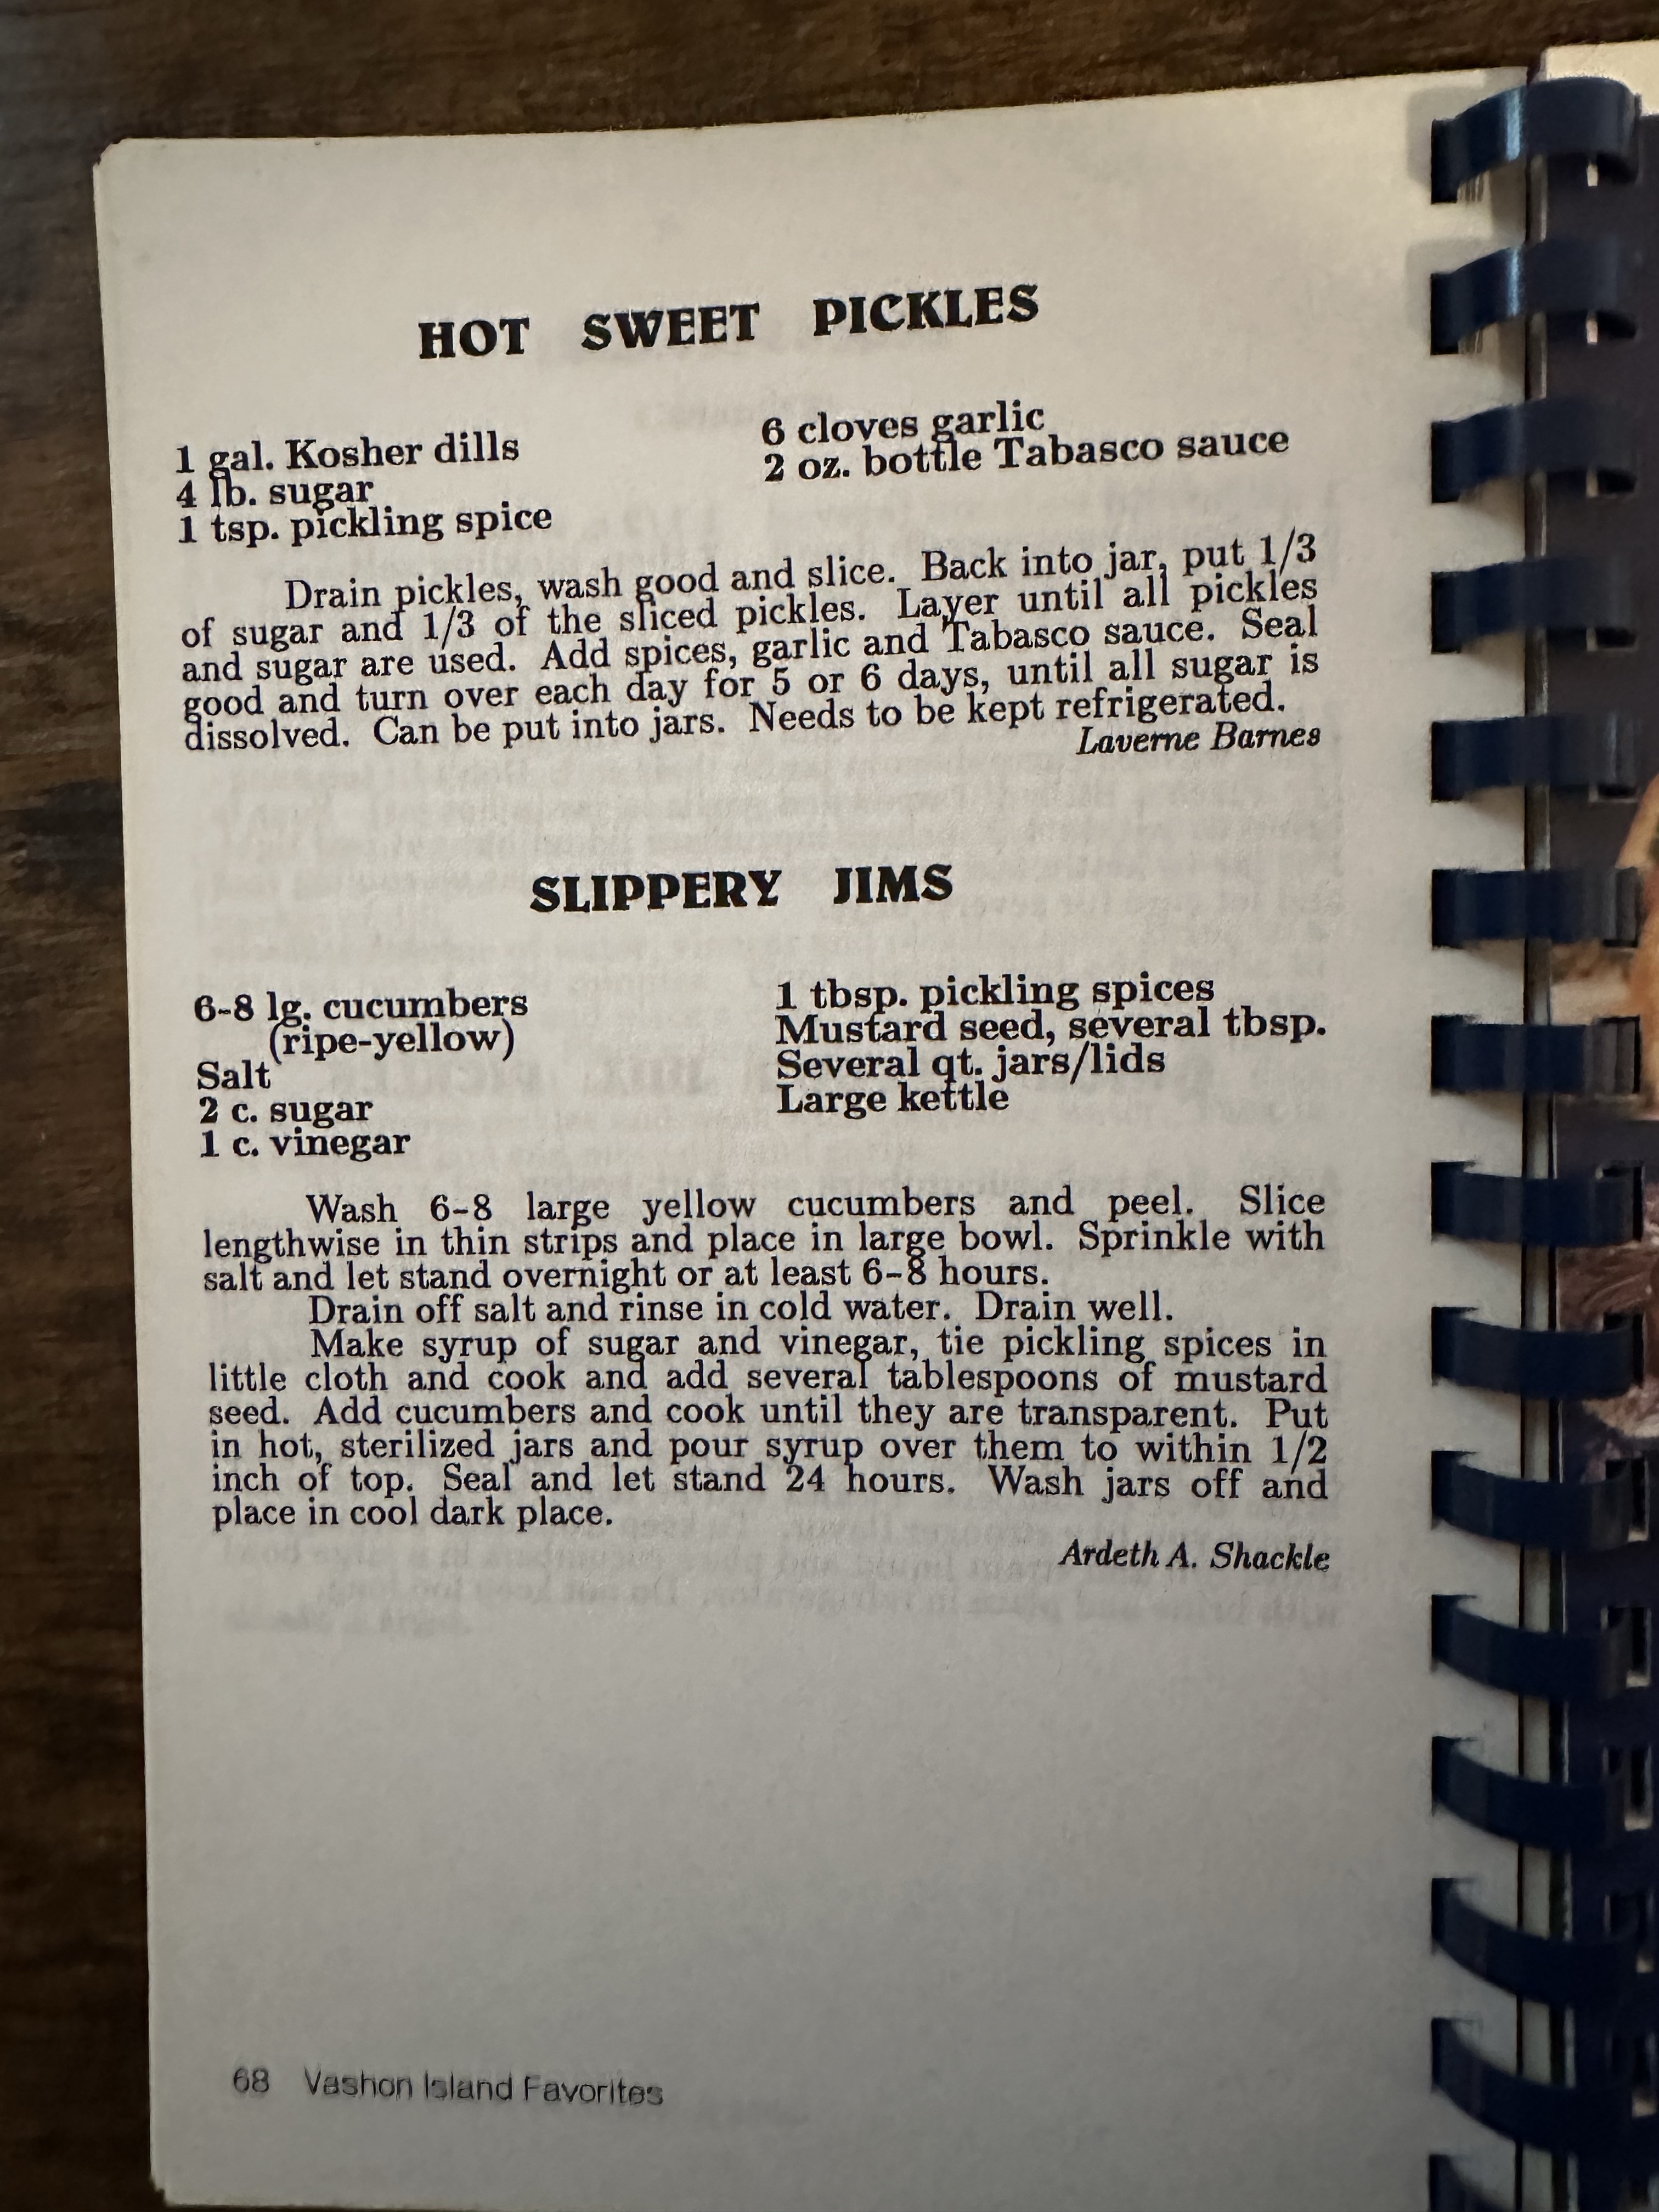 HOT SWEET PICKLES
1 gal. Kosher dills
4 lb. sugar
1 tsp. pickling spice
6 cloves garlic
2 oz. bottle Tabasco sauce
Drain pickles, wash good and slice. Back into jar, put 1/3
of sugar and 1/3 of the sliced pickles. Layer until all pickles
and sugar are used. Add spices, garlic and Tabasco sauce. Seal
good and turn over each day for 5 or 6 days, until all sugar is
dissolved. Can be put into jars. Needs to be kept refrigerated.
Laverne Barnes
SLIPPERY JIMS
6-8 lg. cucumbers
(ripe-yellow)
Salt
2 c. sugar
1 c. vinegar
1 tbsp. pickling spices
Mustard seed, several tbsp.
Several qt. jars/lids
Large kettle
Wash 6-8 large yellow cucumbers and peel. Slice
lengthwise in thin strips and place in large bowl. Sprinkle with
salt and let stand overnight or at least 6-8 hours.
Drain off salt and rinse in cold water. Drain well.
Make syrup of sugar and vinegar, tie pickling spices in
little cloth and cook and add several tablespoons of mustard
seed. Add cucumbers and cook until they are transparent. Put
in hot, sterilized jars and pour syrup over them to within 1/2
inch of top. Seal and let stand 24 hours. Wash jars off and
place in cool dark place.
Ardeth A. Shackle
68 Vashon Island Favorites